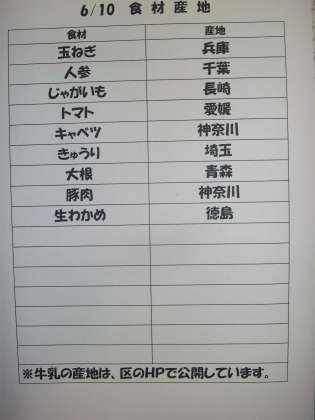 6/10 食材産地
食材 産地
玉ねぎ 兵庫
人参 千葉
じゃがいも 長崎
トマト 愛媛
キャベツ 神奈川
きゅうり 埼玉
大根 青森
豚肉 神奈川
生わかめ 徳島
※牛乳の産地は、区のHPで公開しています。